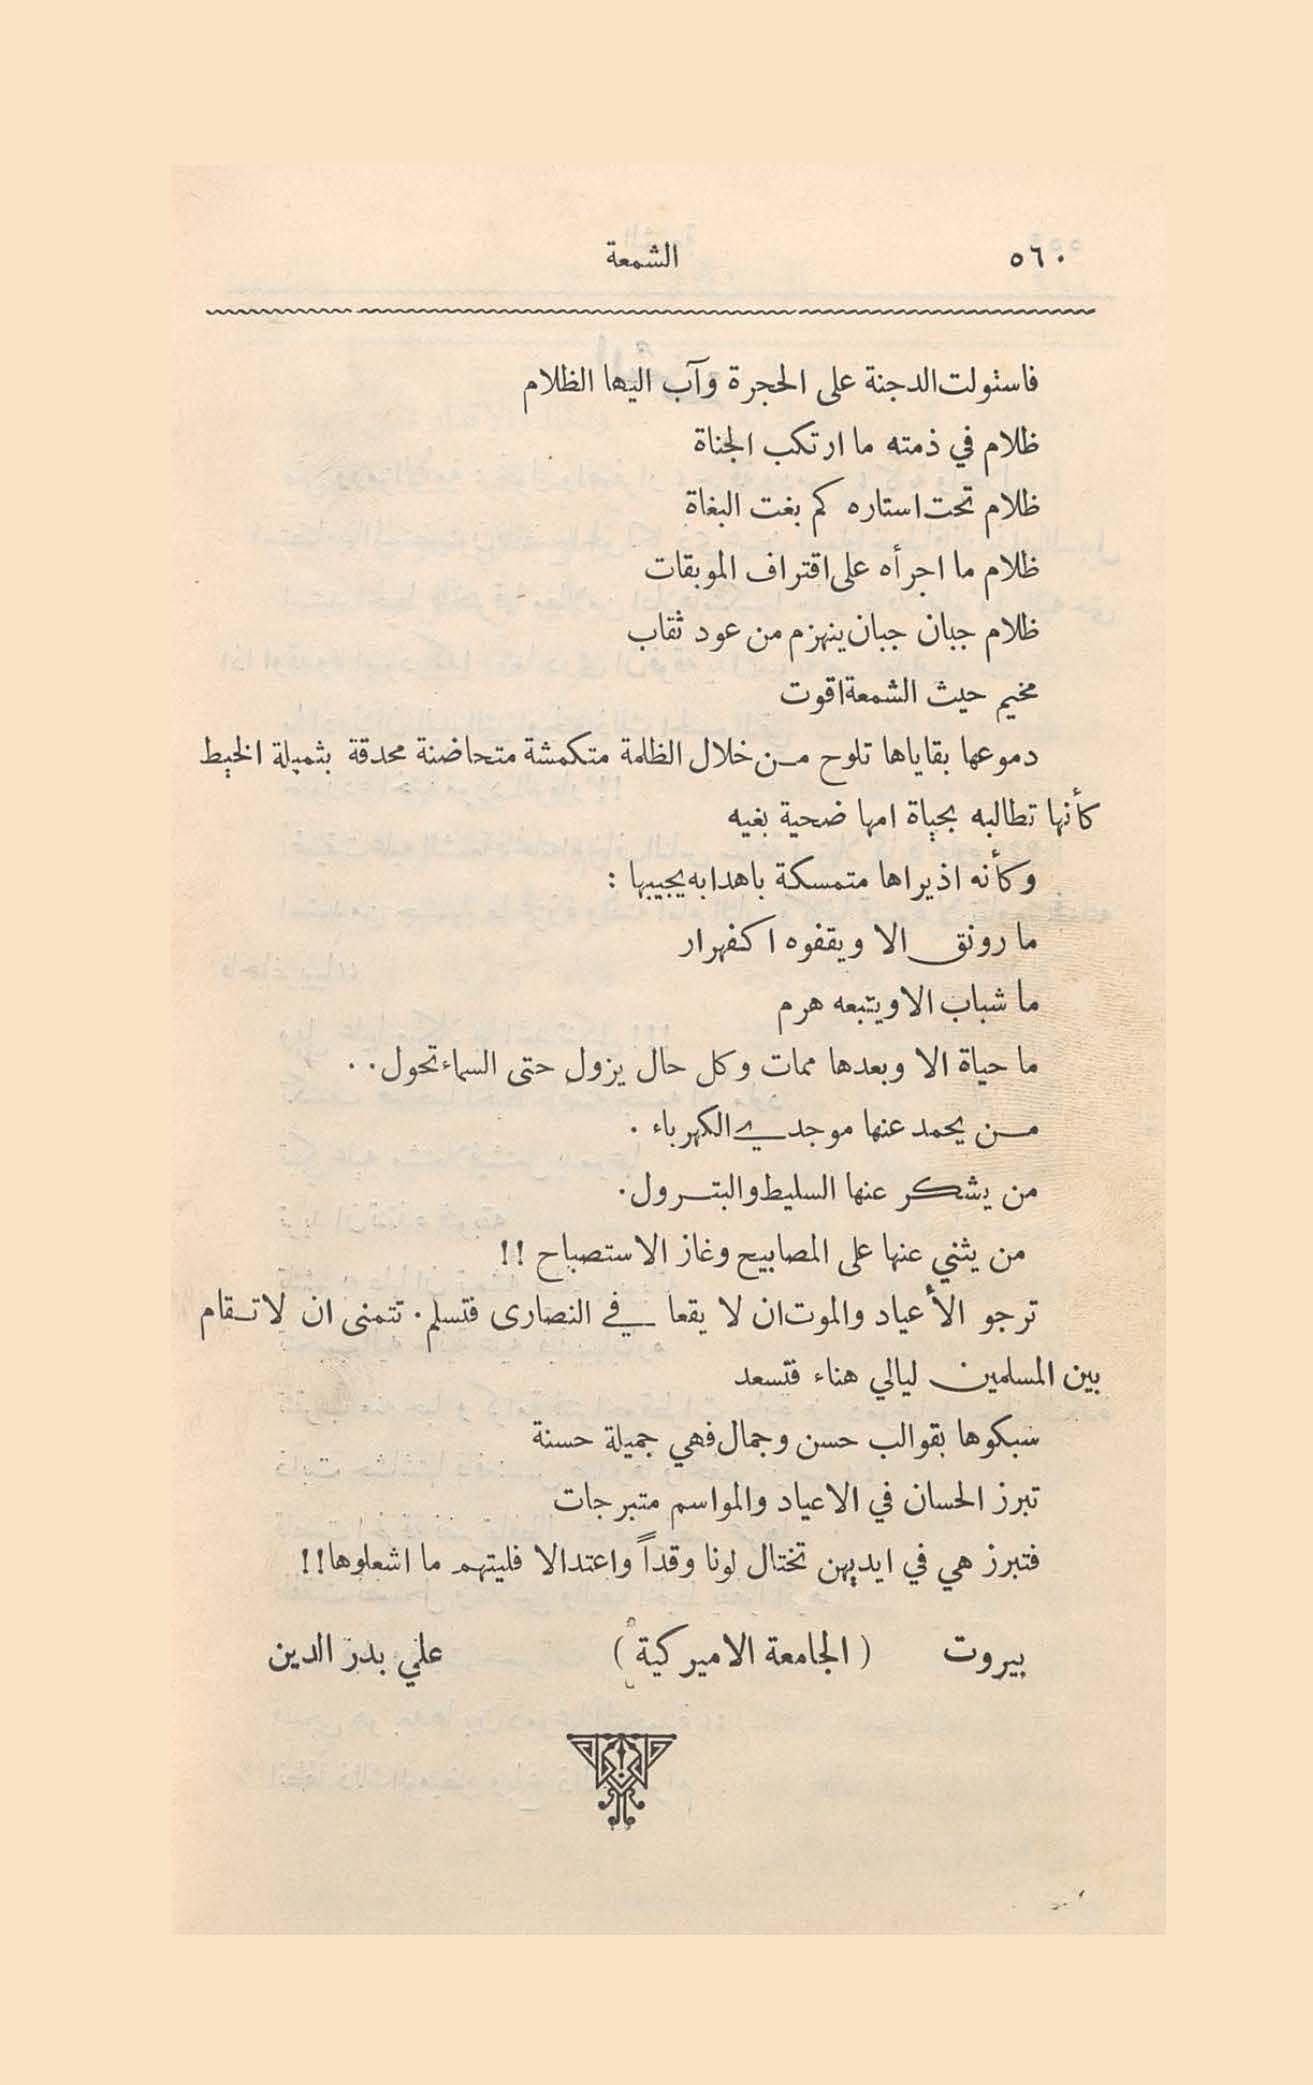 ٥٦٠
الشمعة
فاستولت الدجنة على الحجرة وآب اليها الظلام
ظلام في ذمته ما ارتكب الجناة
ظلام تحت استاره كم بغت البغاة
ظلام ما اجرأه على اقتراف الموبقات
ظلام جبان جبان ينهزم من عود ثقاب
مخيم حيث الشمعة اقوت
دموعها بقاياها تلوح من خلال الظلمة متكمشة متحاضنة محدقة بثميلة الخيط
كأنها تطالبه بحياة امها ضحية بغيه
وكأنه اذ يراها متمسكة باهدابه يجيبها :
ما رونق الا ويقفوه اكفهرار
ما شباب الا ويتبعه هرم
ما حياة الا وبعدها ممات وكل حال يزول حتى السماء تحول . .
من يحمد عنها موجدي الكهرباء .
من يشكر عنها السليط والبترول .
من يثني عنها على المصابيح وغاز الاستصباح !!
ترجو الأعياد والموت ان لا يقعا في النصارى فتسلم . تتمنى ان لا تقام
بين المسلمين ليالي هناء فتسعد
سبكوها بقوالب حسن وجمال فهي جميلة حسنة
تبرز الحسان في الاعياد والمواسم متبرجات
فتبرز هي في ايديهن تختال لونا وقداً واعتدالا فليتهم ما اشعلوها !!
بيروت ( الجامعة الاميركية ) علي بدر الدين